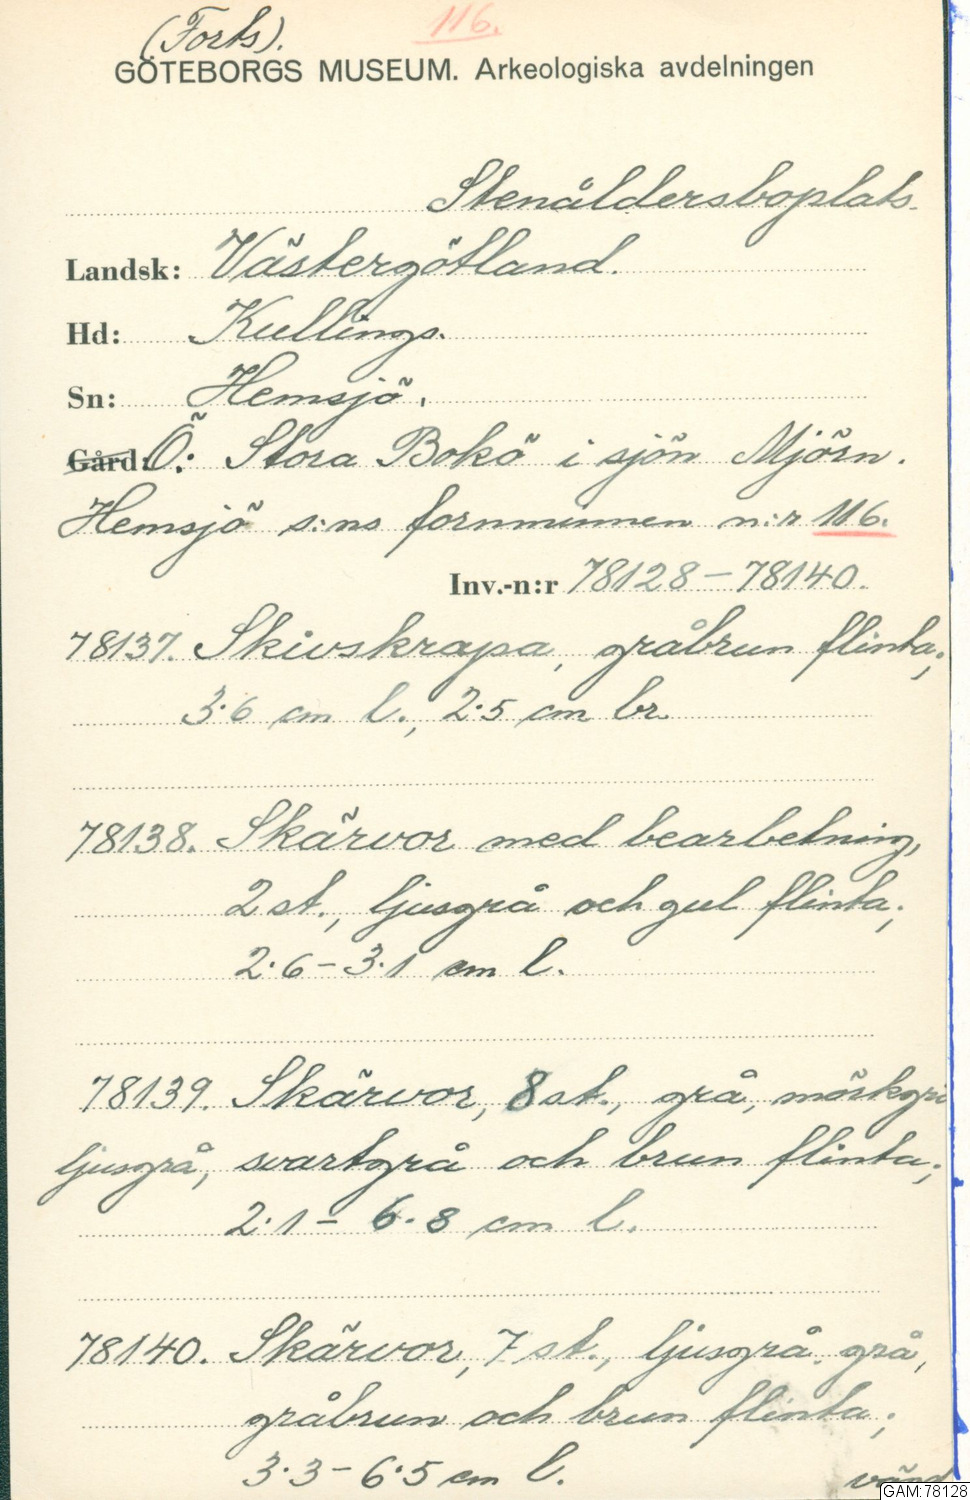 (Forts).
116.
GÖTEBORGS MUSEUM. Arkeologiska avdelningen
Stenåldersboplats.
Landsk: Västergötland.
Hd: Kullings.
Sn: Hemsjö.
Gård: Ö: Stora Bokö i sjön Mjörn.
Hemsjö s:ns fornminnen n:r 116.
Inv.-n:r 78128–78140.
78137. Skivskrapa, gråbrun flinta;
3.6 cm l., 2.5 cm br.
78138. Skärvor med bearbetning,
2 st., ljusgrå och gul flinta;
2.6–3.1 cm l.
78139. Skärvor, 8 st., grå, mörkgrå
ljusgrå, svartgrå och brun flinta;
2.1–6.8 cm l.
78140. Skärvor, 7 st., ljusgrå, grå,
gråbrun och brun flinta;
3.3–6.5 cm l.
vänd
GAM:78128